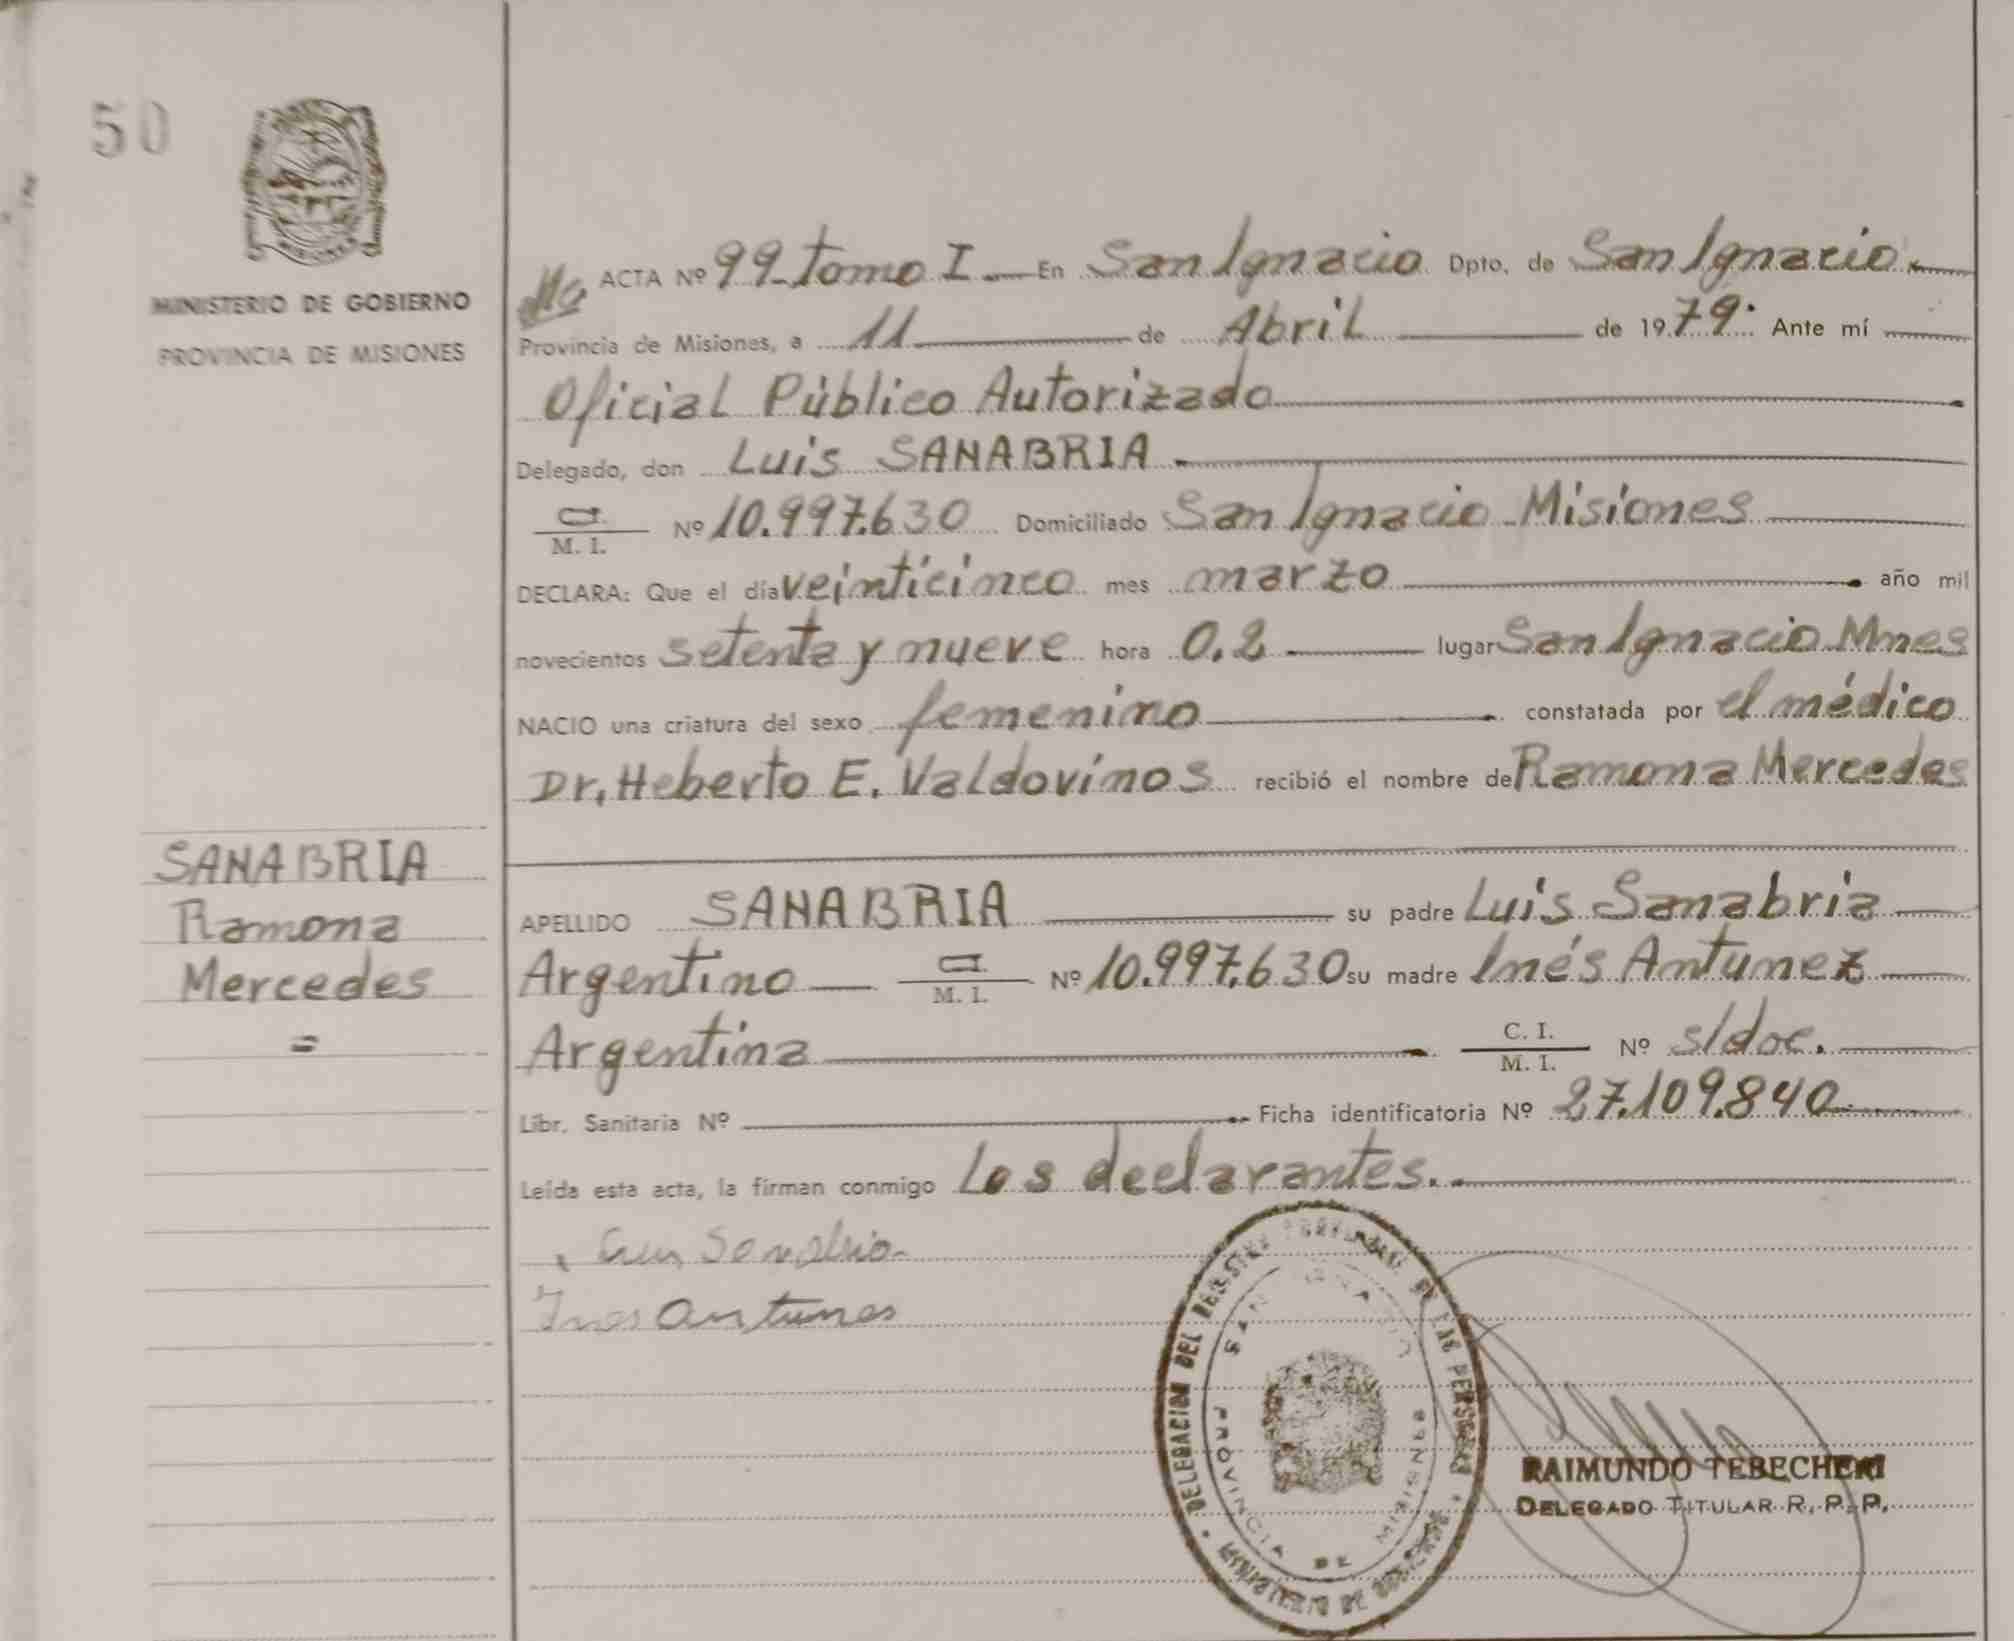 50
MINISTERIO DE GOBIERNO
PROVINCIA DE MISIONES
ACTA Nº 99 tomo I En San Ignacio Dpto. de San Ignacio
Provincia de Misiones, a 11 de Abril de 1979. Ante mí
Oficial Público Autorizado
Delegado, don Luis SANABRIA
C.I.
M. I. Nº 10.997.630 Domiciliado San Ignacio Misiones
DECLARA: Que el día veinticinco mes marzo año mil
novecientos setenta y nueve hora 0.2 lugar San Ignacio Mnes
NACIO una criatura del sexo femenino constatada por el médico
Dr. Heberto E. Valdovinos recibió el nombre de Ramona Mercedes
SANABRIA
Ramona
Mercedes
=
APELLIDO SANABRIA su padre Luis Sanabria
Argentino C.I. M. I. Nº 10.997.630 su madre Inés Antunez
Argentina C. I. M. I. Nº s/doc.
Libr. Sanitaria Nº Ficha identificatoria Nº 27.109.840
Leída esta acta, la firman conmigo Los declarantes.
Sanabria
Ines Antunes
DELEGACION DEL REGISTRO PROVINCIAL DE LAS PERSONAS
SAN IGNACIO
PROVINCIA DE MISIONES
MINISTERIO DE GOBIERNO
RAIMUNDO TEBECHERI
DELEGADO TITULAR R. P. P.